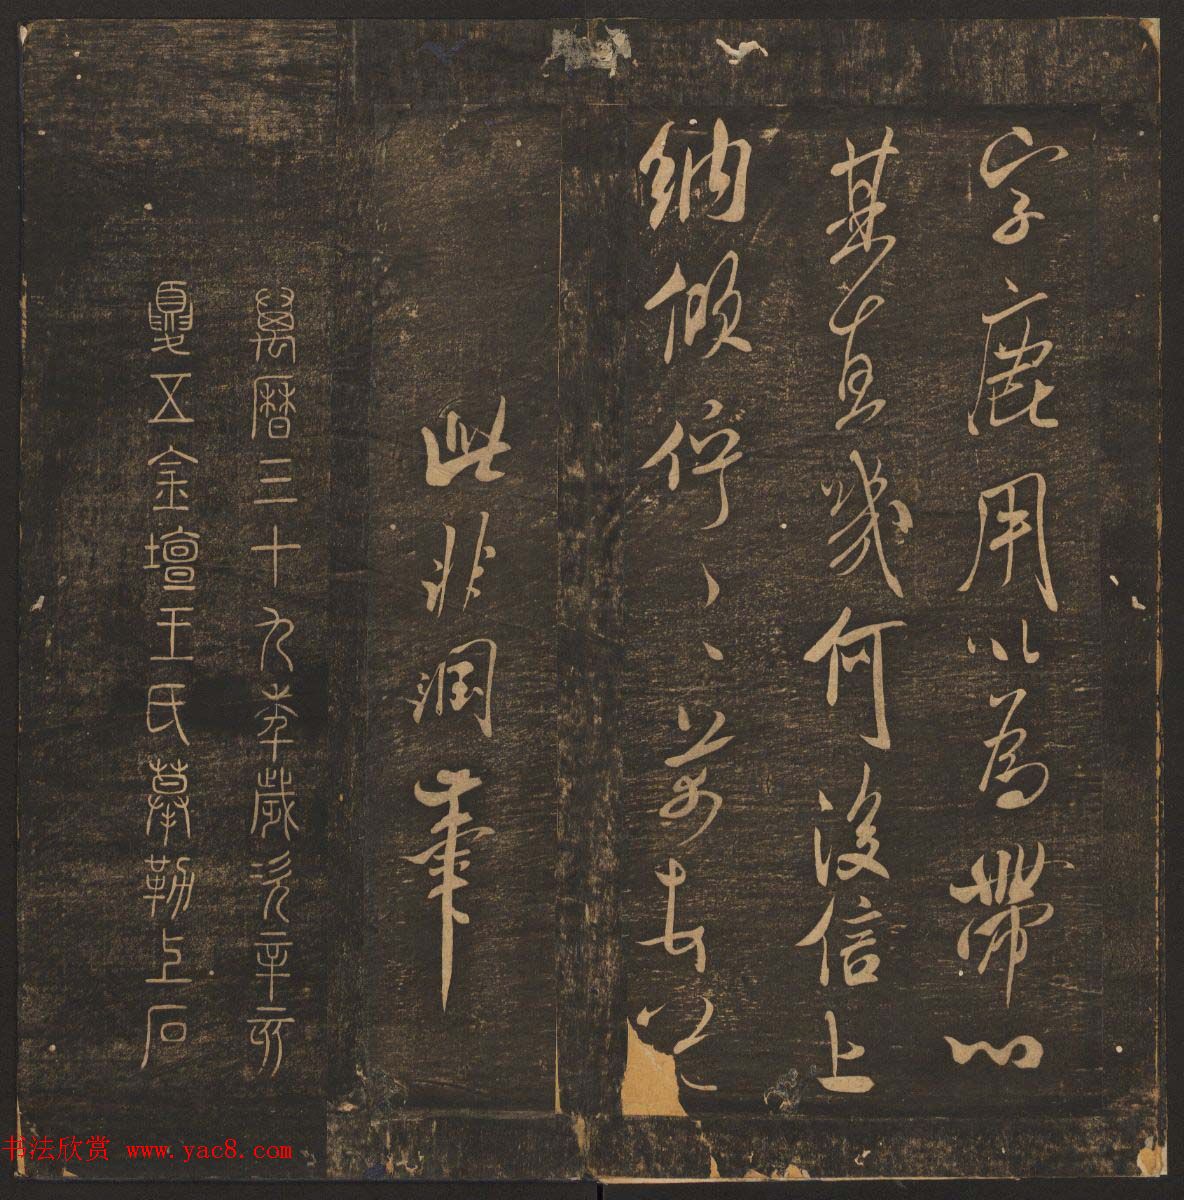 字鹿用以為帶
某直幾何後信上
納傾佇〻〻
此非潤筆
萬曆三十九季歲次辛亥
夏五金壇王氏摹勒上石
书法欣赏 www.yac8.com